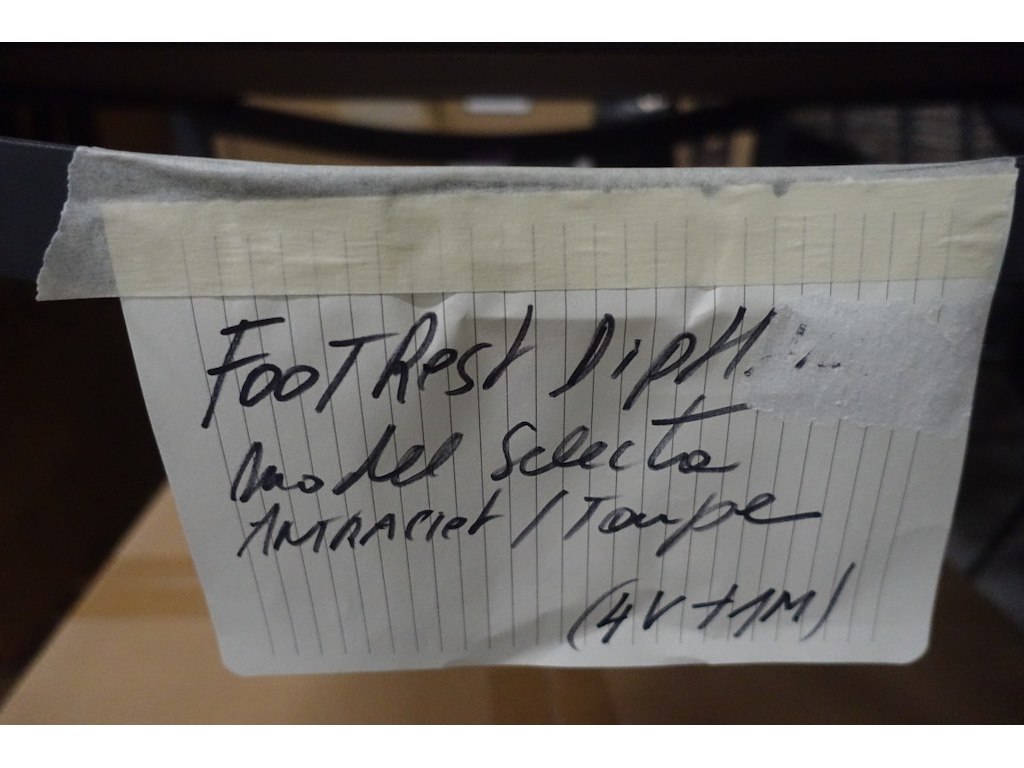 FOOTRest DipH.
model Selecta
ANTRACIet / Taupe
(4V + 1M)